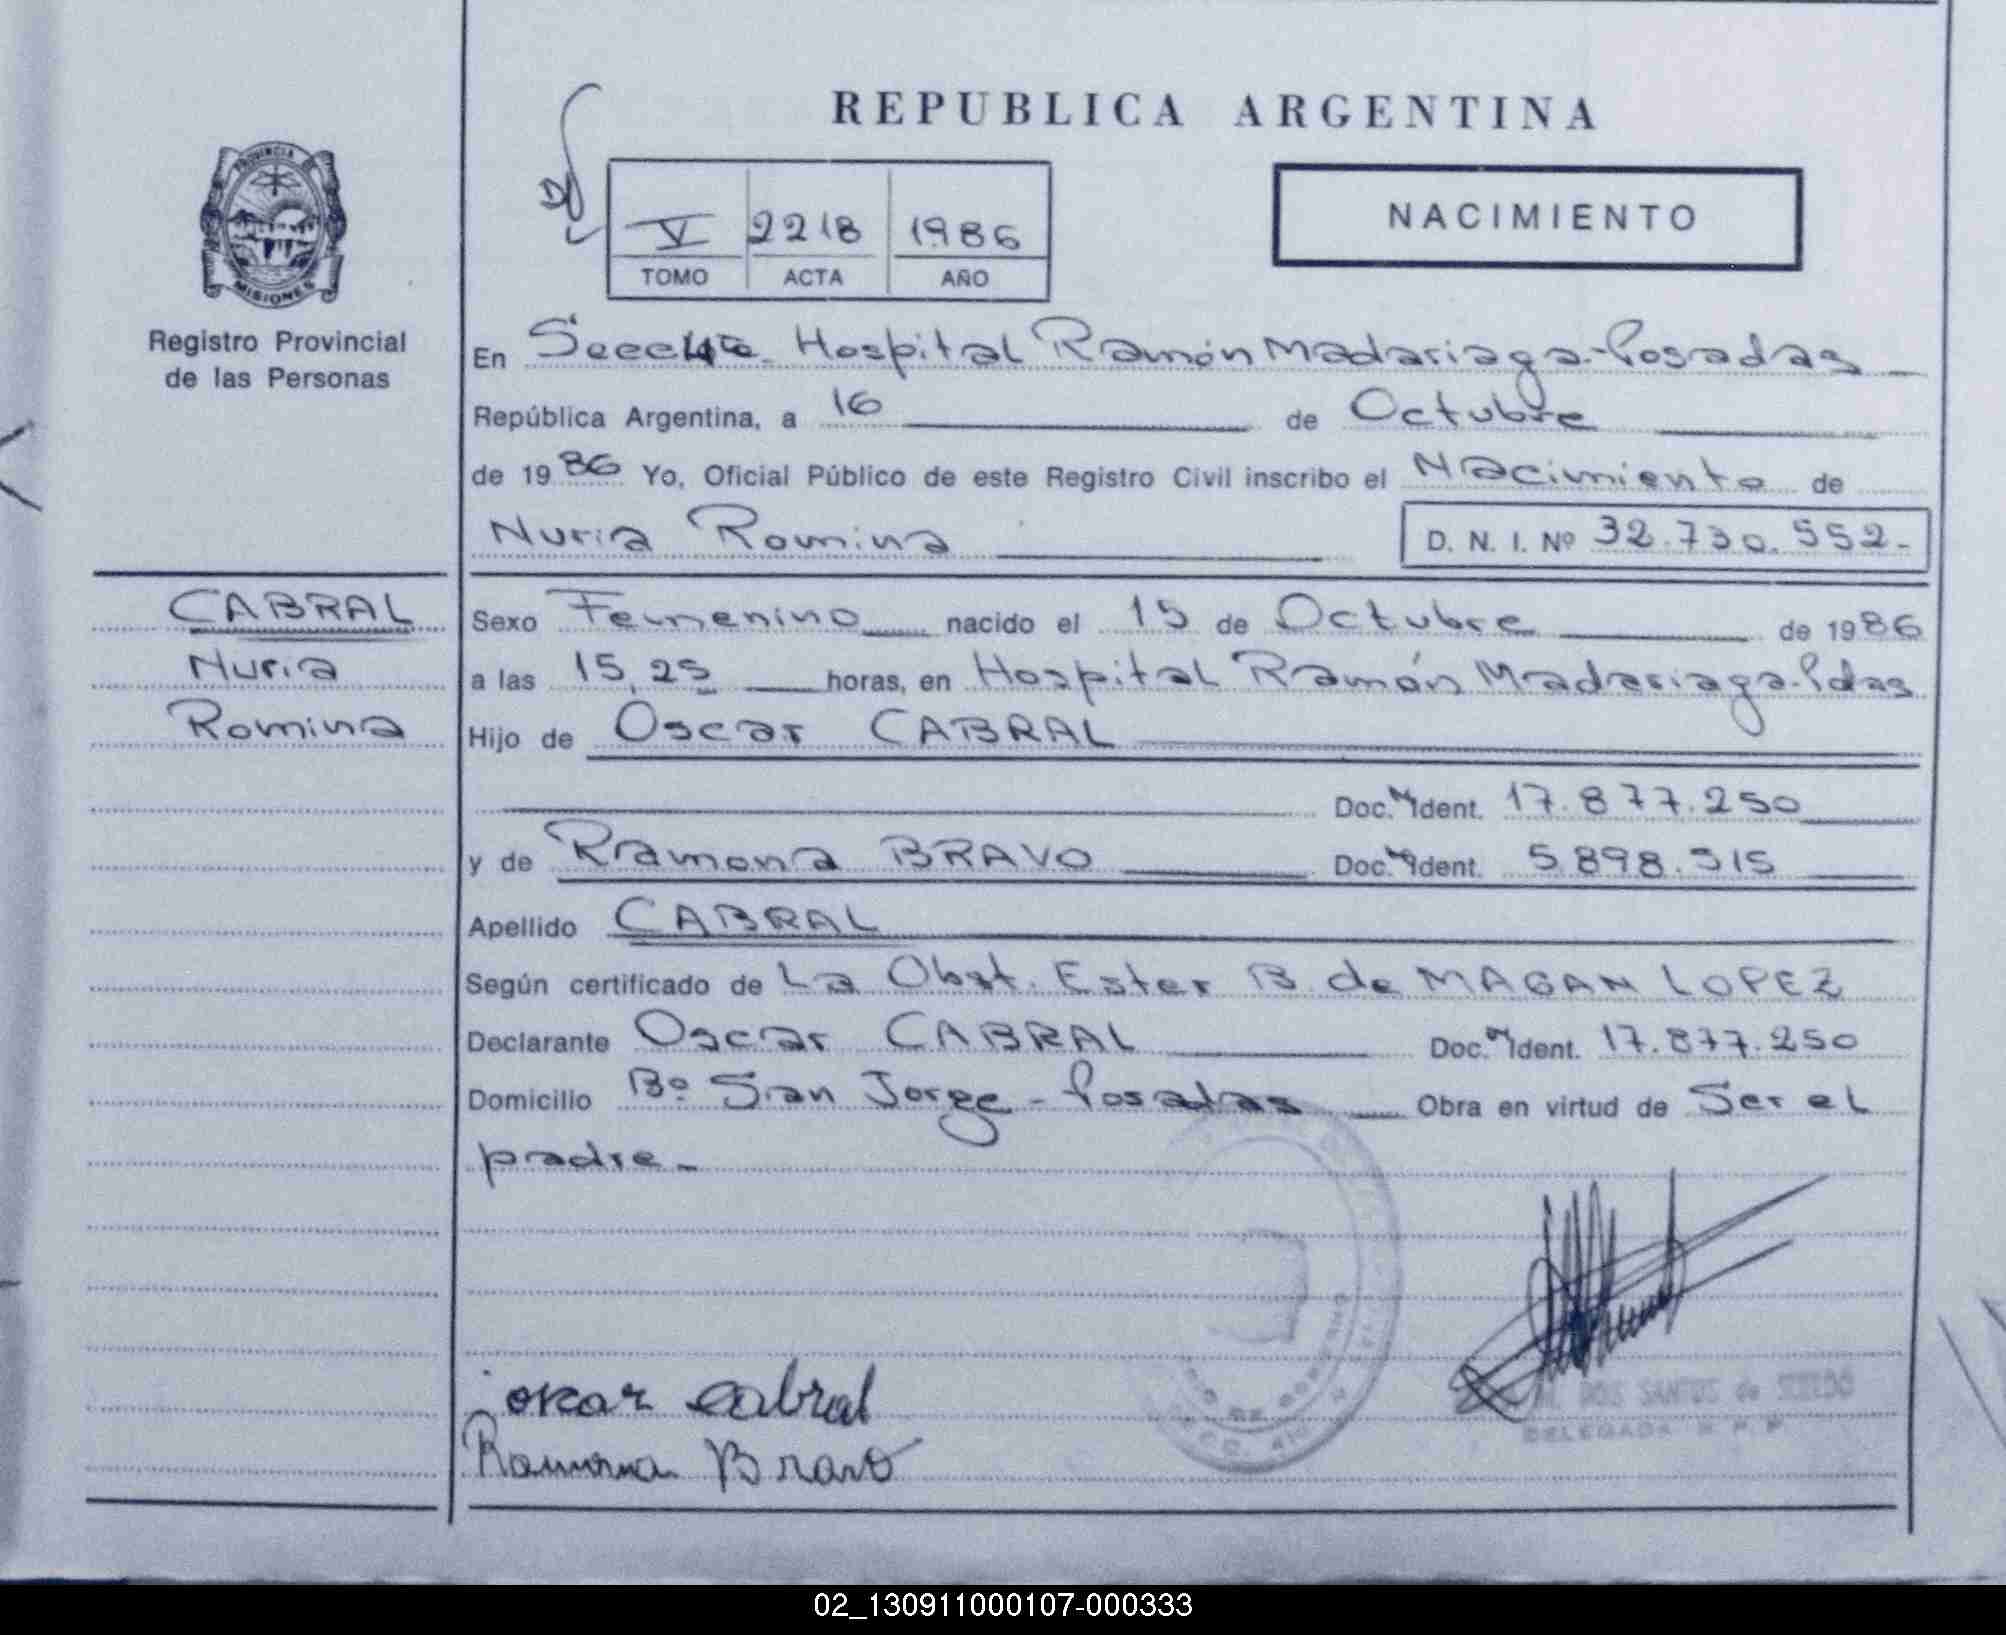 REPUBLICA ARGENTINA
PROVINCIA
MISIONES
Registro Provincial
de las Personas
V 2218 1986
TOMO ACTA AÑO
NACIMIENTO
En Hospital Ramón Madariaga - Posadas
República Argentina, a 16 de Octubre
de 1986 Yo, Oficial Público de este Registro Civil inscribo el Nacimiento de
Nuria Romina D. N. I. Nº 32.730.552.-
CABRAL
Nuria
Romina
Sexo Femenino nacido el 15 de Octubre de 1986
a las 15,25 horas, en Hospital Ramón Madariaga - Pdas
Hijo de Oscar CABRAL
Doc. Ident. 17.877.250
y de Ramona BRAVO Doc. Ident. 5.898.515
Apellido CABRAL
Según certificado de La Obst. Ester B. de MAGAN LOPEZ
Declarante Oscar CABRAL Doc. Ident. 17.877.250
Domicilio Bº San Jorge - Posadas Obra en virtud de Ser el
padre.-
oscar cabral
Ramona Bravo
DOS SANTOS de
DELEGADA
02_130911000107-000333